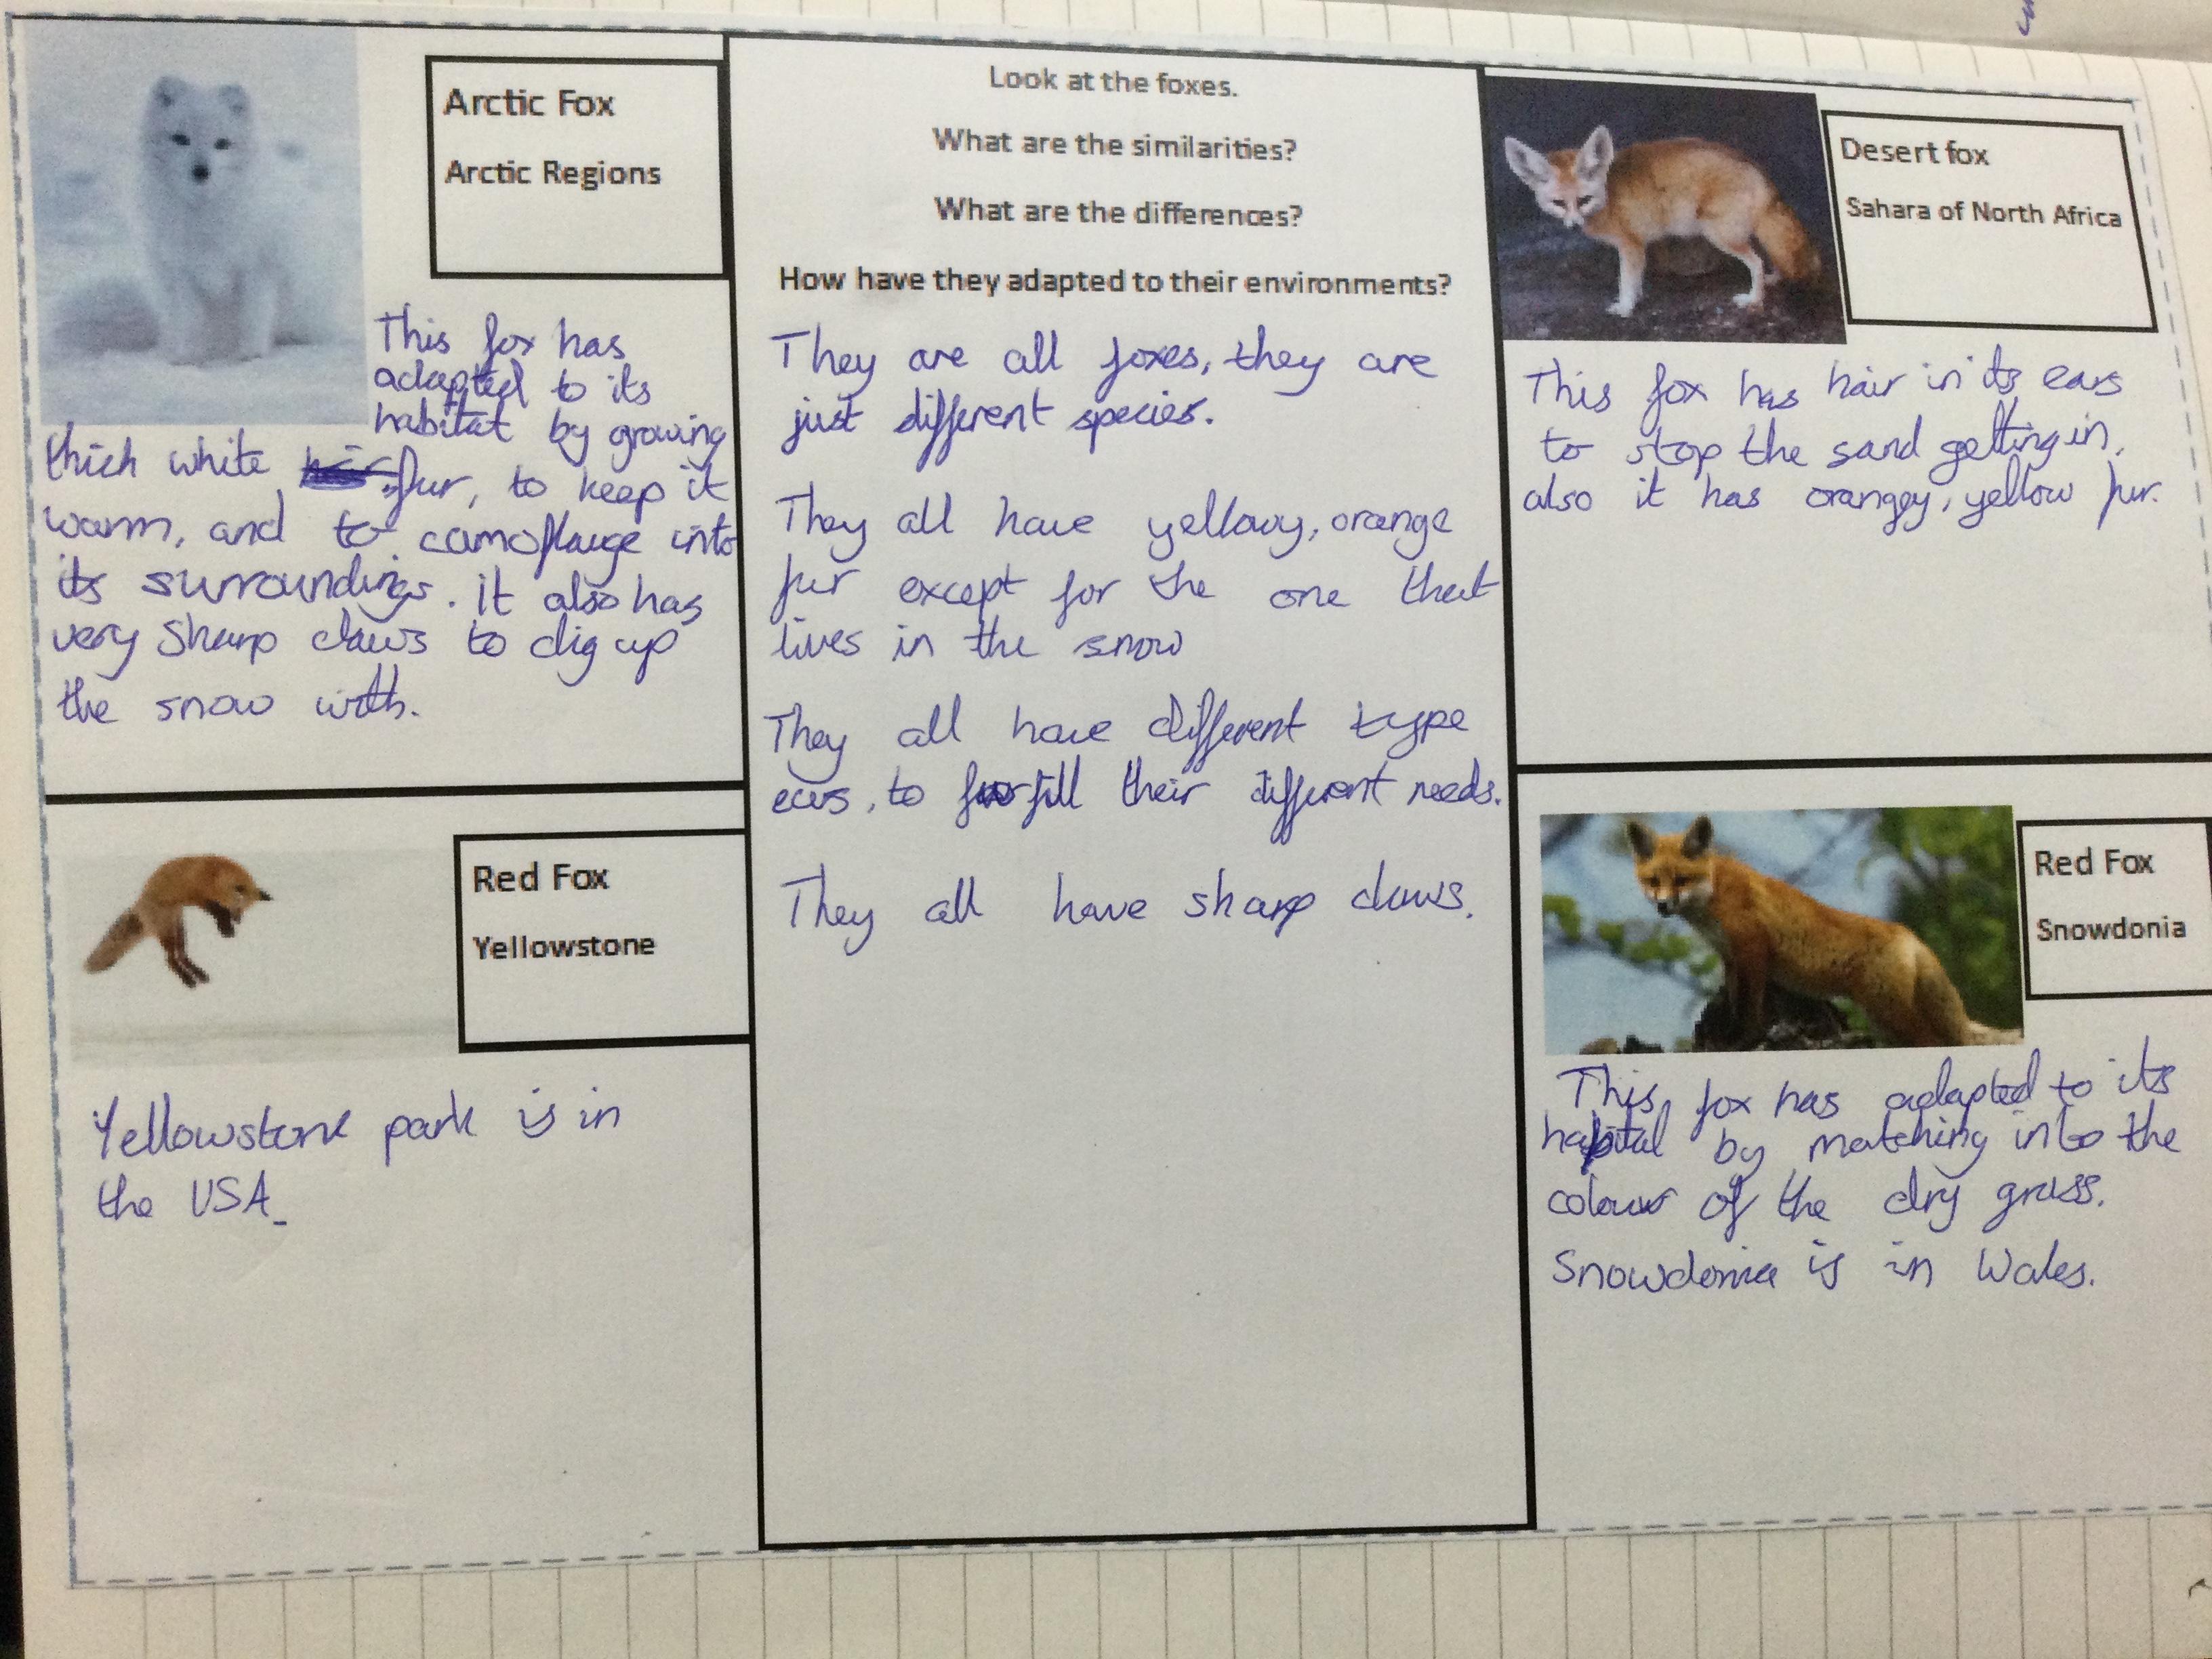 Arctic Fox
Arctic Regions
This fox has
adapted to its
habitat by growing
thick white fur, to keep it
warm, and to camoflauge into
its surroundings. it also has
very sharp claws to dig up
the snow with.
Look at the foxes.
What are the similarities?
What are the differences?
How have they adapted to their environments?
They are all foxes, they are
just different species.
They all have yellowy, orange
fur except for the one that
lives in the snow
They all have different type
ears, to furfill their different needs.
They all have sharp claws.
Desert fox
Sahara of North Africa
This fox has hair in its ears
to stop the sand getting in,
also it has orangey, yellow fur.
Red Fox
Yellowstone
Yellowstone park is in
the USA.
Red Fox
Snowdonia
This fox has adapted to its
habital by matching into the
colour of the dry grass.
Snowdonia is in Wales.